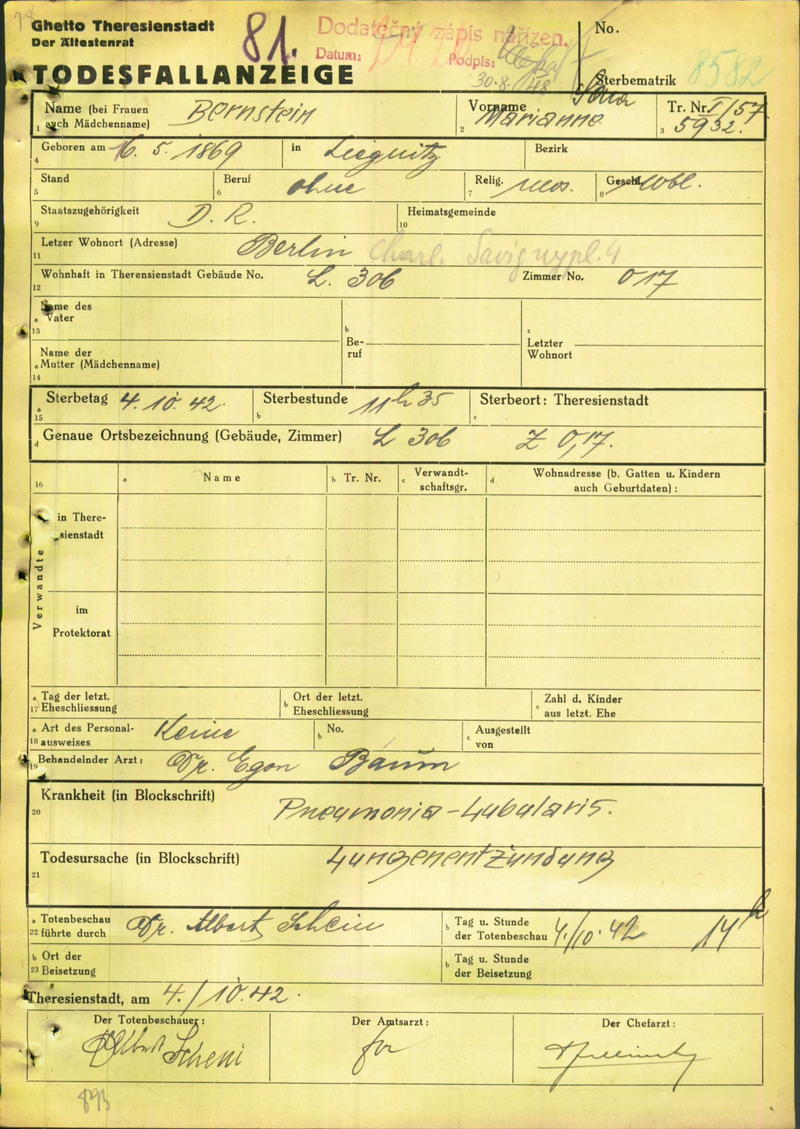 Ghetto Theresienstadt
Der Ältestenrat
81.
Dodatečný zápis nařízen.
Datum: Podpis:
30.8. 48
No.
TODESFALLANZEIGE
Sterbematrik 8582
Name (bei Frauen auch Mädchenname) Bernstein
1
Vorname Marianne Sara
2
Tr. Nr. I/57
3 5932.
Geboren am 16. 5. 1869 in Liegnitz Bezirk
4
Stand Beruf ohne Relig. mos. Geschl. Wbl.
5 6 7 8
Staatszugehörigkeit D. R. Heimatsgemeinde
9 10
Letzer Wohnort (Adresse) Berlin Charl. Savignypl. 4
11
Wohnhaft in Theresienstadt Gebäude No. L. 306 Zimmer No. 017
12
Name des
a Vater
13
b Be-ruf
c Letzter Wohnort
Name der
a Mutter (Mädchenname)
14
Sterbetag 4. 10. 42. Sterbestunde 11h 35 Sterbeort: Theresienstadt
a 15 b c
d Genaue Ortsbezeichnung (Gebäude, Zimmer) L 306 Z 0,17.
16 a Name b Tr. Nr. c Verwandt-schaftsgr. d Wohnadresse (b. Gatten u. Kindern auch Geburtdaten):
Verwandte
in There-
sienstadt
im
Protektorat
a Tag der letzt. b Ort der letzt. c Zahl d. Kinder
17 Eheschliessung Eheschliessung aus letzt. Ehe
a Art des Personal- Keine b No. c Ausgestellt
18 ausweises von
19 Behandelnder Arzt: Dr. Egon Baum
Krankheit (in Blockschrift) Pneumonia-Lubularis.
20
Todesursache (in Blockschrift) Lungenentzündung
21
a Totenbeschau Dr. Albert Schein b Tag u. Stunde
22 führte durch der Totenbeschau 4./10. 42 14h
b Ort der b Tag u. Stunde
23 Beisetzung der Beisetzung
Theresienstadt, am 4./10. 42.
Der Totenbeschauer: Der Amtsarzt: Der Chefarzt:
Albert Schein for
893